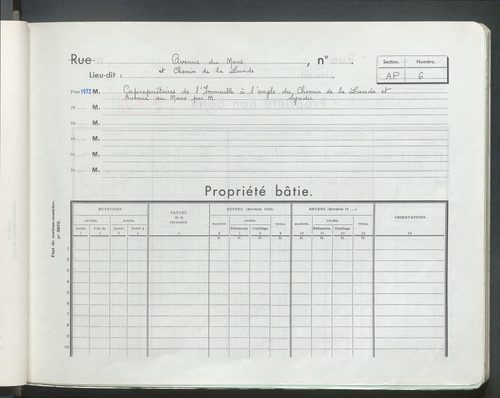 Rue Avenue du Mans , n° .
Section. Numéro.
Lieu-dit : et Chemin de la Lande .
AP 6
1972 M. Copropriétaires de l'Immeuble à l'angle du Chemin de la Lande et
Avenue du Mans par M Syndic
19 M.
19 M.
19 M.
19 M.
Propriété bâtie.
MUTATIONS. NATURE de la PROPRIÉTÉ. REVENU (Révision 19 ). REVENU (Révision 19 ). OBSERVATIONS.
MAISONS. USINES. TOTAL MAISONS. USINES. TOTAL
Année. Tiré de Année. Porté à Bâtiments Outillage. Bâtiments Outillage.
1 2 3 4 5 6 7 8 9 10 11 12 13 14
1
2
3
4
5
6
7
8
9
10